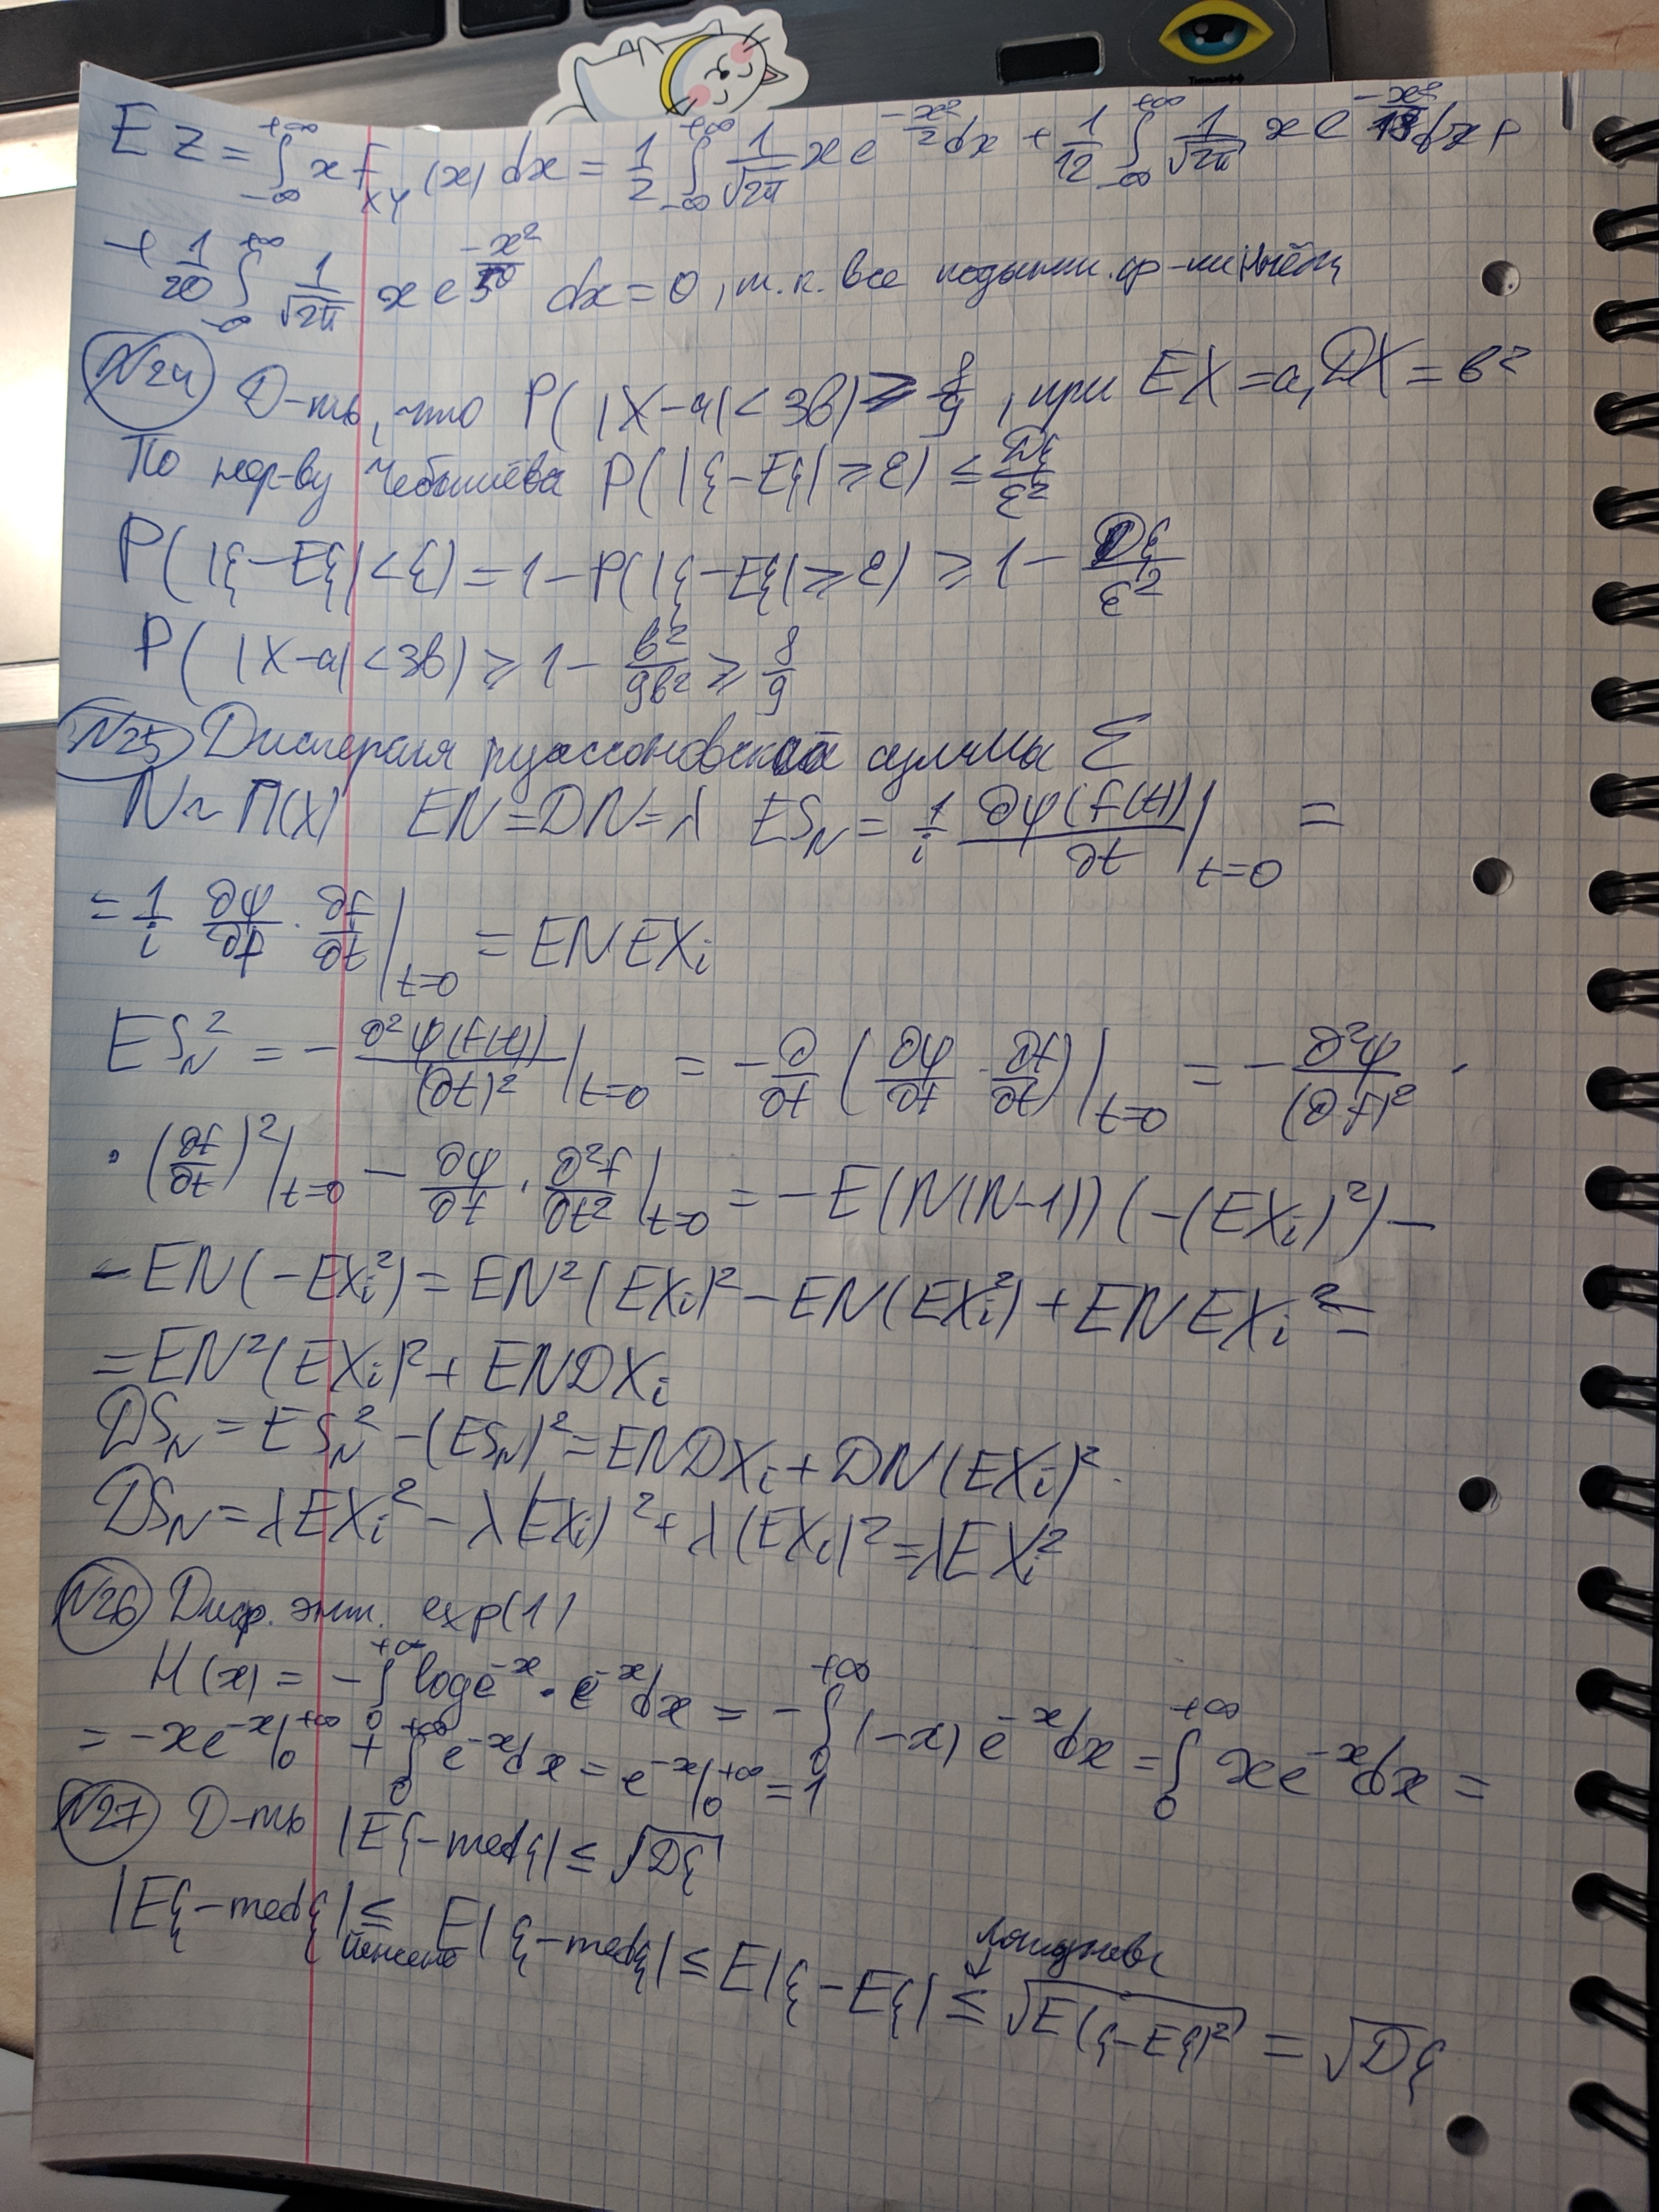 Тинькофф
EZ = ∫_{-∞}^{+∞} x f_{XY}(x) dx = 1/2 ∫_{-∞}^{+∞} 1/√2π x e^{-x²/2} dx + 1/12 ∫_{-∞}^{+∞} 1/√2π x e^{-x²/18} dx +
+ 1/20 ∫_{-∞}^{+∞} 1/√2π x e^{-x²/50} dx = 0, т.к. все подынт. ф-ии
N24 Д-ть, что P(|X-a|<3b) ≥ 8/9, при EX = a, DX = b²
По нер-ву Чебышёва P(|ξ-Eξ| ≥ ε) ≤ Dξ/ε²
P(|ξ-Eξ|<ξ) = 1 - P(|ξ-Eξ| ≥ ε) ≥ 1 - Dξ/ε²
P(|X-a|<3b) ≥ 1 - b²/9b² ≥ 8/9
N25 Дисперсия пуассоновской суммы Σ
N ~ П(λ) EN = DN = λ ES_N = 1/i ∂ψ(f(t))/∂t |_{t=0} =
= 1/i ∂ψ/∂f · ∂f/∂t |_{t=0} = EN EX_i
ES_N² = - ∂²ψ(f(t))/(∂t)² |_{t=0} = - ∂/∂t (∂ψ/∂f · ∂f/∂t) |_{t=0} = - ∂²ψ/(∂f)² ·
· (∂f/∂t)² |_{t=0} - ∂ψ/∂f · ∂²f/∂t² |_{t=0} = - E(N(N-1)) (-(EX_i)²) -
- EN(-EX_i²) = EN²(EX_i)² - EN(EX_i²) + EN EX_i² =
= EN²(EX_i)² + EN DX_i
DS_N = ES_N² - (ES_N)² = EN DX_i + DN(EX_i)².
DS_N = λEX_i² - λ(EX_i)² + λ(EX_i)² = λEX_i²
N26 Диф. энт. exp(1)
H(x) = - ∫_0^{+∞} log e^{-x} · e^{-x} dx = - ∫_0^{+∞} (-x) e^{-x} dx = ∫_0^{+∞} x e^{-x} dx =
= -x e^{-x} |_0^{+∞} + ∫_0^{+∞} e^{-x} dx = e^{-x} |_0^{+∞} = 1
N27 Д-ть |Eξ - medξ| ≤ √Dξ
|Eξ - medξ| ≤ E|ξ - medξ| ≤ E|ξ - Eξ| ≤ √E(ξ-Eξ)² = √Dξ